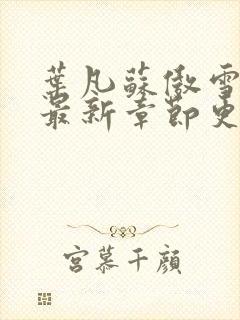 葉凡蘇傲雪
最新章節更
宮慕千顏